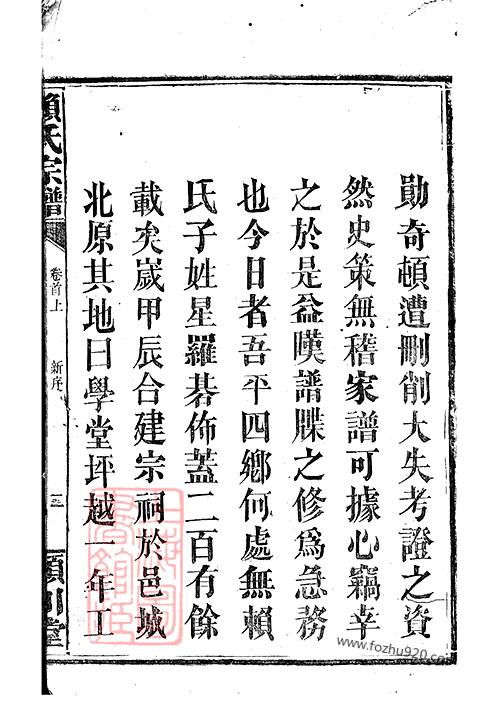 勛奇頓遭刪削大失考證之資
然史策無稽家譜可據心竊幸
之於是益嘆譜牒之修爲急務
也今日者吾平四鄉何處無賴
氏子姓星羅碁佈蓋二百有餘
載矣嵗甲辰合建宗祠於邑城
北原其地曰學堂坪越一年工
賴氏宗譜
卷首上
新序
三
頴川堂
www.fozhu920.com